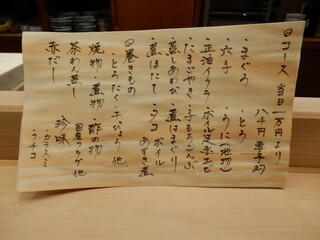 コース 当日 一万円より
八千円 要予約
・まぐろ ・とろ
・穴子 ・うに(地物)
・正油イクラ ・ボイル足赤エビ
・たまごやき ・子もちこんぶ
・蒸しあわび ・煮はまぐり
・煮ほたて ・タコ ボイル
あずき煮
巻きもの
・とろたく・干ぴょう 他
焼物・煮物・酢の物
国産クラゲ他
茶わん蒸し 珍味
・カラスミ
赤だし ・クチコ